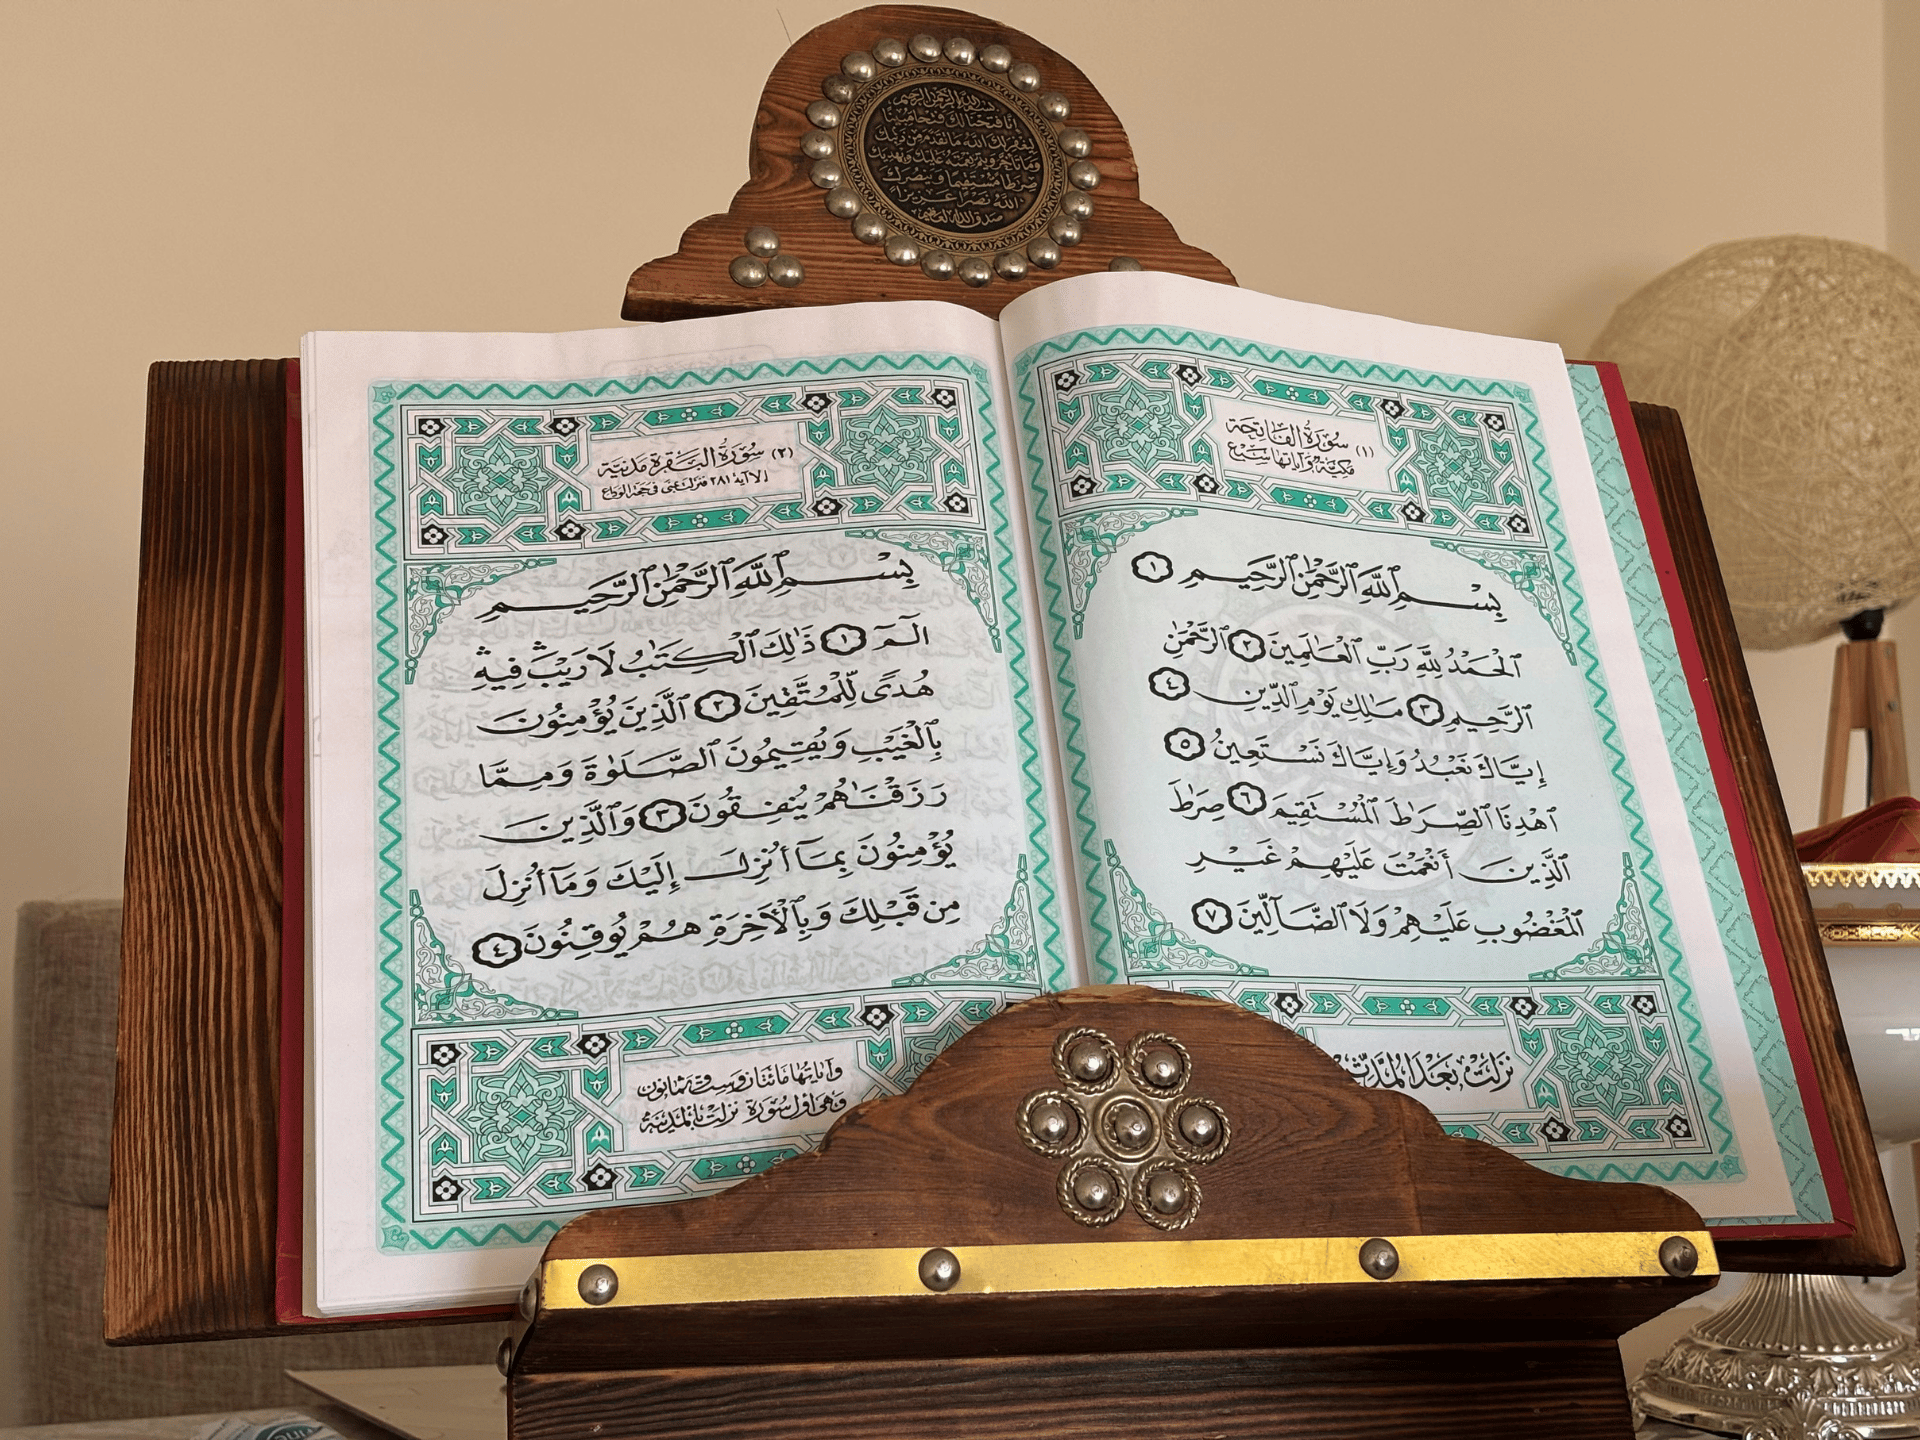 بسم الله الرحمن الرحيم
إنا فتحنا لك فتحا مبينا
ليغفر لك الله ما تقدم من ذنبك
وما تأخر ويتم نعمته عليك ويهديك
صراطا مستقيما وينصرك
الله نصرا عزيزا
صدق الله العظيم
(١) سُورَةُ الفَاتِحَة
مكيّة وَآياتها سَبْع
بِسْمِ ٱللَّهِ ٱلرَّحْمَٰنِ ٱلرَّحِيمِ ١
ٱلْحَمْدُ لِلَّهِ رَبِّ ٱلْعَٰلَمِينَ ٢ ٱلرَّحْمَٰنِ
ٱلرَّحِيمِ ٣ مَٰلِكِ يَوْمِ ٱلدِّينِ ٤
إِيَّاكَ نَعْبُدُ وَإِيَّاكَ نَسْتَعِينُ ٥
ٱهْدِنَا ٱلصِّرَٰطَ ٱلْمُسْتَقِيمَ ٦ صِرَٰطَ
ٱلَّذِينَ أَنْعَمْتَ عَلَيْهِمْ غَيْرِ
ٱلْمَغْضُوبِ عَلَيْهِمْ وَلَا ٱلضَّآلِّينَ ٧
نزلت بَعْدَ المدَّثِّر
(٢) سُورَةُ البَقَرَة مَدنيَّة
إلا آية ٢٨١ فنزلت بمنى في حجة الوداع
بِسْمِ ٱللَّهِ ٱلرَّحْمَٰنِ ٱلرَّحِيمِ
الٓمٓ ١ ذَٰلِكَ ٱلْكِتَٰبُ لَا رَيْبَۛ فِيهِۛ
هُدًى لِّلْمُتَّقِينَ ٢ ٱلَّذِينَ يُؤْمِنُونَ
بِٱلْغَيْبِ وَيُقِيمُونَ ٱلصَّلَوٰةَ وَمِمَّا
رَزَقْنَٰهُمْ يُنفِقُونَ ٣ وَٱلَّذِينَ
يُؤْمِنُونَ بِمَآ أُنزِلَ إِلَيْكَ وَمَآ أُنزِلَ
مِن قَبْلِكَ وَبِٱلْأَخِرَةِ هُمْ يُوقِنُونَ ٤
وآياتها مائتان وست وثمانون
وهي أول سُورَة نزلت بالمدينة